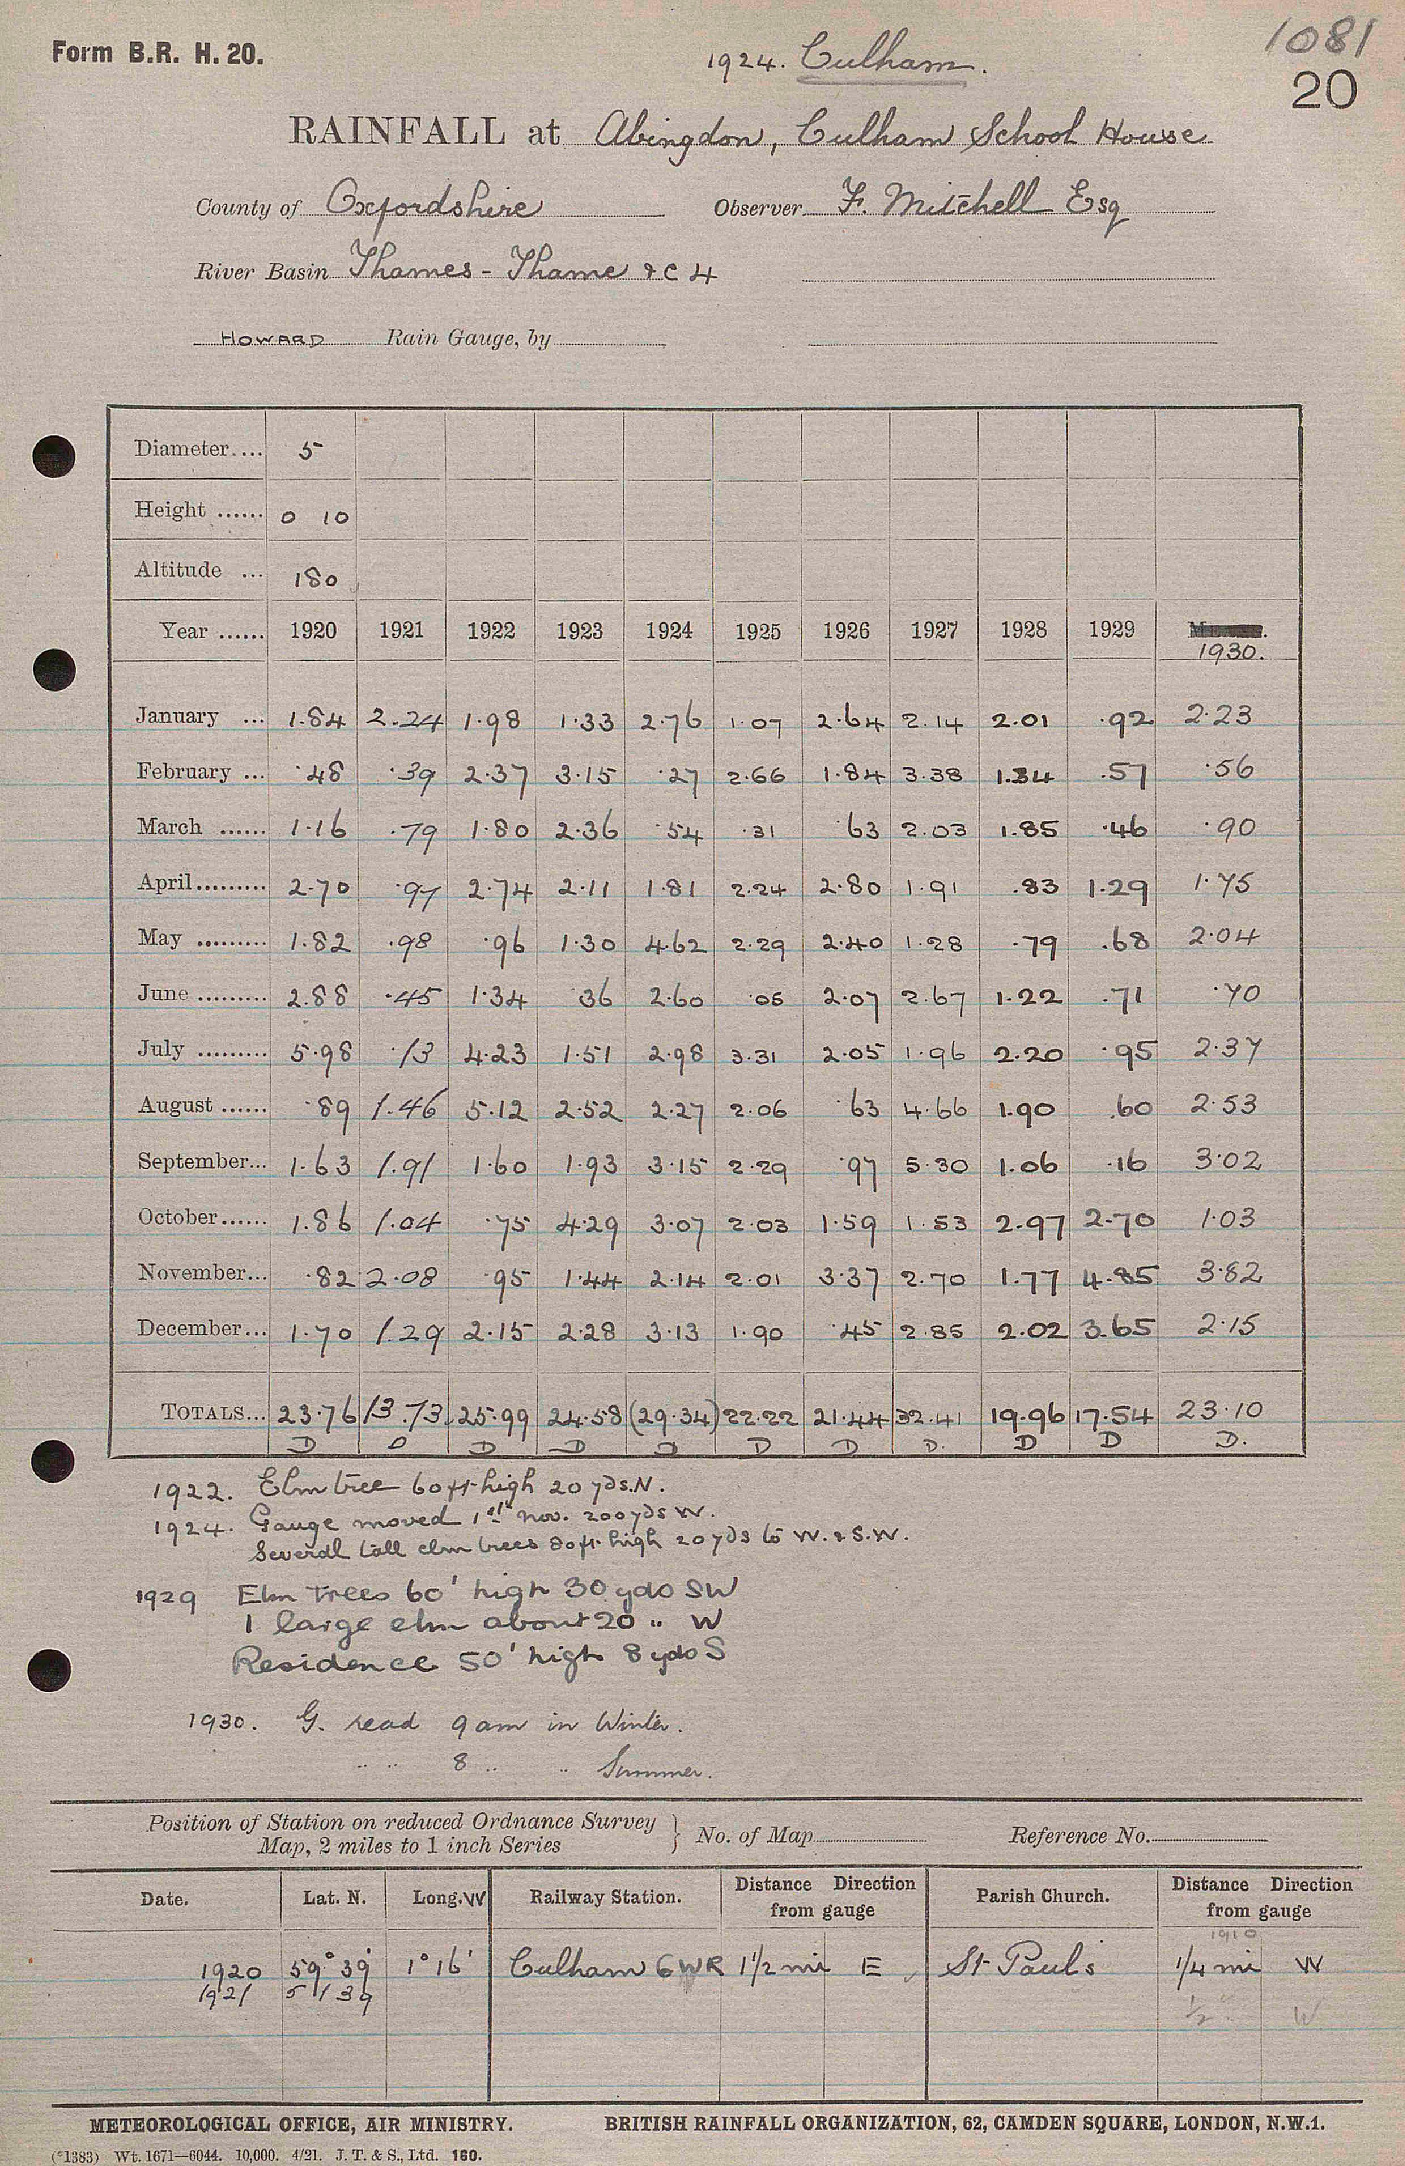 Form B.R. H. 20.
1081
1924. Culham.
20
RAINFALL at Abingdon, Culham School House
County of Oxfordshire Observer F. Mitchell Esq
River Basin Thames - Thame &c 4
HOWARD Rain Gauge, by
Diameter.... 5
Height ...... 0 10
Altitude ... 180
Year ...... 1920 1921 1922 1923 1924 1925 1926 1927 1928 1929
1930.
January ... 1.84 2.24 1.98 1.33 2.76 1.07 2.64 2.14 2.01 .92 2.23
February ... .48 .39 2.37 3.15 .27 2.66 1.84 3.38 1.34 .57 .56
March ...... 1.16 .79 1.80 2.36 .54 .31 .63 2.03 1.85 .46 .90
April......... 2.70 .97 2.74 2.11 1.81 2.24 2.80 1.91 .83 1.29 1.75
May ......... 1.82 .98 .96 1.30 4.62 2.29 2.40 1.28 .79 .68 2.04
June ......... 2.88 .45 1.34 .36 2.60 .05 2.07 2.67 1.22 .71 .70
July ......... 5.98 .13 4.23 1.51 2.98 3.31 2.05 1.96 2.20 .95 2.37
August ...... .89 1.46 5.12 2.52 2.27 2.06 .63 4.66 1.90 .60 2.53
September... 1.63 1.91 1.60 1.93 3.15 2.29 .97 5.30 1.06 .16 3.02
October...... 1.86 1.04 .75 4.29 3.07 2.03 1.59 1.53 2.97 2.70 1.03
November... .82 2.08 .95 1.44 2.14 2.01 3.37 2.70 1.77 4.85 3.82
December... 1.70 1.29 2.15 2.28 3.13 1.90 .45 2.85 2.02 3.65 2.15
TOTALS... 23.76 13.73 25.99 24.58 (29.34) 22.22 21.44 32.41 19.96 17.54 23.10
D D D D D D D D. D D D.
1922. Elm tree 60 ft high 20 yds. N.
1924. Gauge moved 1st Nov. 200 yds W.
Several tall elm trees 80 ft. high 20 yds to W. & S.W.
1929 Elm trees 60' high 30 yds SW
1 large elm about 20 " W
Residence 50' high 8 yds S
1930. G. read 9 am in Winter.
" " 8 " " Summer.
Position of Station on reduced Ordnance Survey
Map, 2 miles to 1 inch Series } No. of Map Reference No.
Date. Lat. N. Long. W Railway Station. Distance Direction from gauge Parish Church. Distance Direction from gauge
1910
1920 59° 39' 1° 16' Culham GWR 1 1/2 mi E St Paul's 1/4 mi W
1921 51 39
1/2 " W
METEOROLOGICAL OFFICE, AIR MINISTRY. BRITISH RAINFALL ORGANIZATION, 62, CAMDEN SQUARE, LONDON, N.W.1.
(*1383) Wt. 1671—6044. 10,000. 4/21. J. T. & S., Ltd. 160.